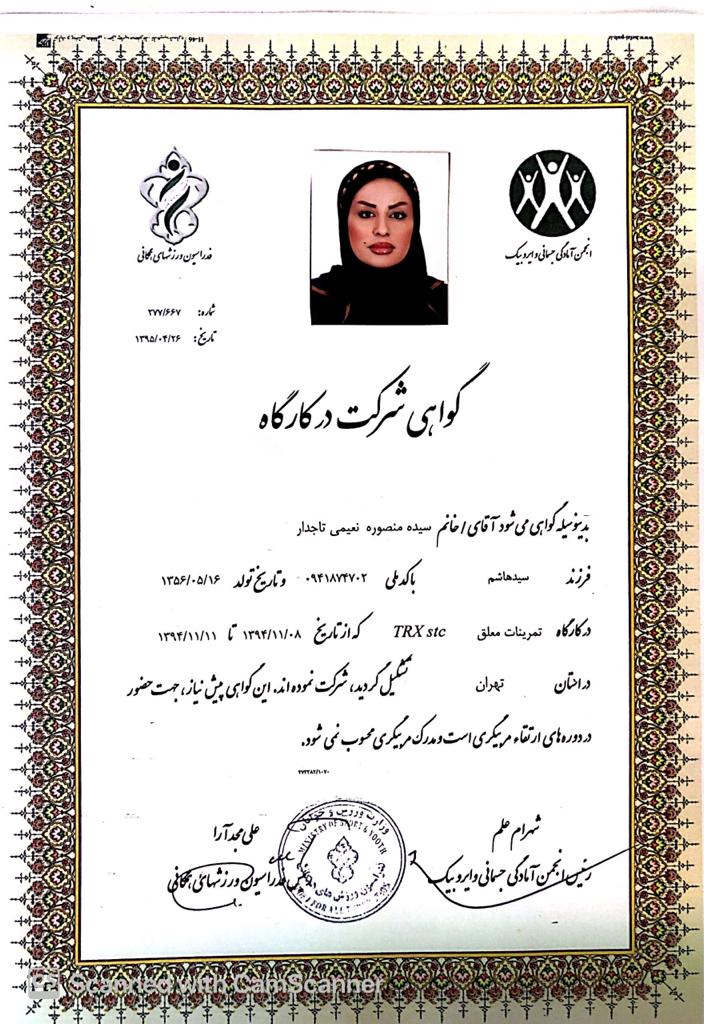 فدراسیون ورزشهای همگانی
انجمن آمادگی جسمانی و ایروبیک
شماره: ۲۷۷/۶۶۷
تاریخ: ۱۳۹۵/۰۴/۲۶
گواهی شرکت در کارگاه
بدینوسیله گواهی می شود آقای / خانم سیده منصوره نعیمی تاجدار
فرزند سیدهاشم با کد ملی ۰۹۴۱۸۷۴۷۰۲ و تاریخ تولد ۱۳۵۶/۰۵/۱۶
در کارگاه تمرینات معلق TRX stc که از تاریخ ۱۳۹۴/۱۱/۰۸ تا ۱۳۹۴/۱۱/۱۱
در استان تهران تشکیل گردید، شرکت نموده اند. این گواهی پیش نیاز، جهت حضور
در دوره های ارتقاء مربیگری است و مدرک مربیگری محسوب نمی شود.
علی مجدآرا
رئیس فدراسیون ورزشهای همگانی
شهرام علم
رئیس انجمن آمادگی جسمانی و ایروبیک
وزارت ورزش و جوانان
MINISTRY OF SPORT & YOUTH
فدراسیون ورزش های همگانی
Scanned with CamScanner